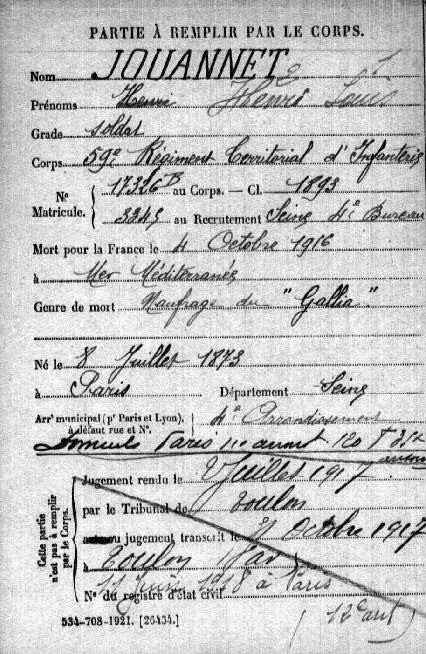 PARTIE À REMPLIR PAR LE CORPS.
Nom JOUANNET
Prénoms Henri Henri Louis
Grade soldat
Corps 59e Régiment Territorial d'Infanterie
No Matricule. 17326 B au Corps. — Cl. 1893
3345 au Recrutement Seine 4e Bureau
Mort pour la France le 4 Octobre 1916
à Mer Méditerranée
Genre de mort Naufrage du "Gallia"
Né le 8 Juillet 1873
à Paris Département Seine
Arrt municipal (pr Paris et Lyon), à défaut rue et No. 4e Arrondissement
Domicile Paris 11e
Cette partie n'est pas à remplir par le Corps.
Jugement rendu le Juillet 1917
par le Tribunal de Toulon
ou jugement transcrit le Octobre 1917
à Toulon Var
11 Juin 1918 à Paris
No du registre d'état civil
(12e arrt)
534-708-1921. [26434.]